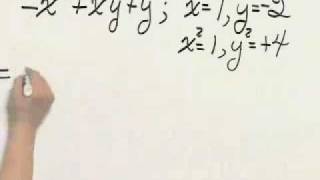 -x + xy + y ; x = 1, y = -2
x² = 1, y² = +4
=